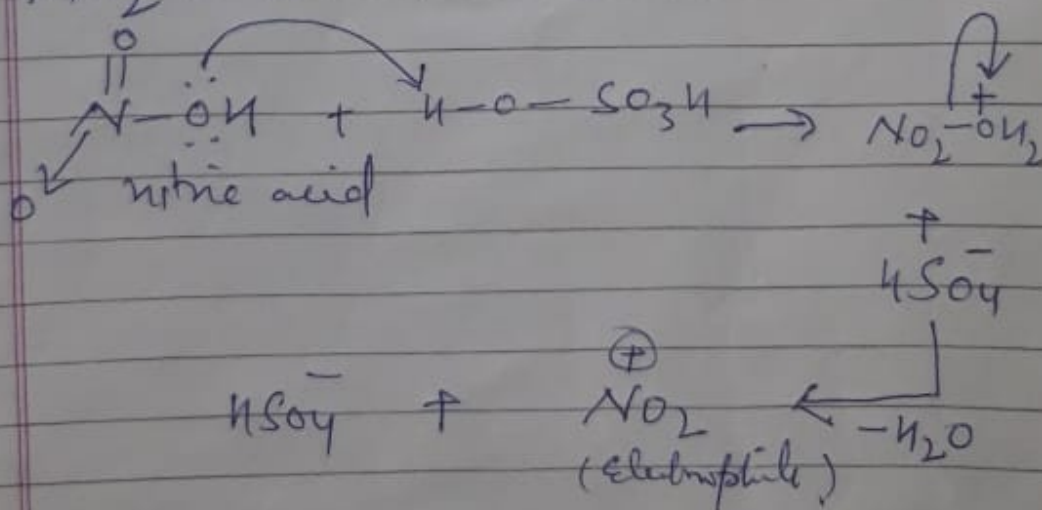 O
||
N–ÖH + H–O–SO₃H → NO₂–O⁺H₂
O nitric acid
+
HSO₄⁻
HSO₄⁻ + NO₂⊕ ← –H₂O
(Electrophile)